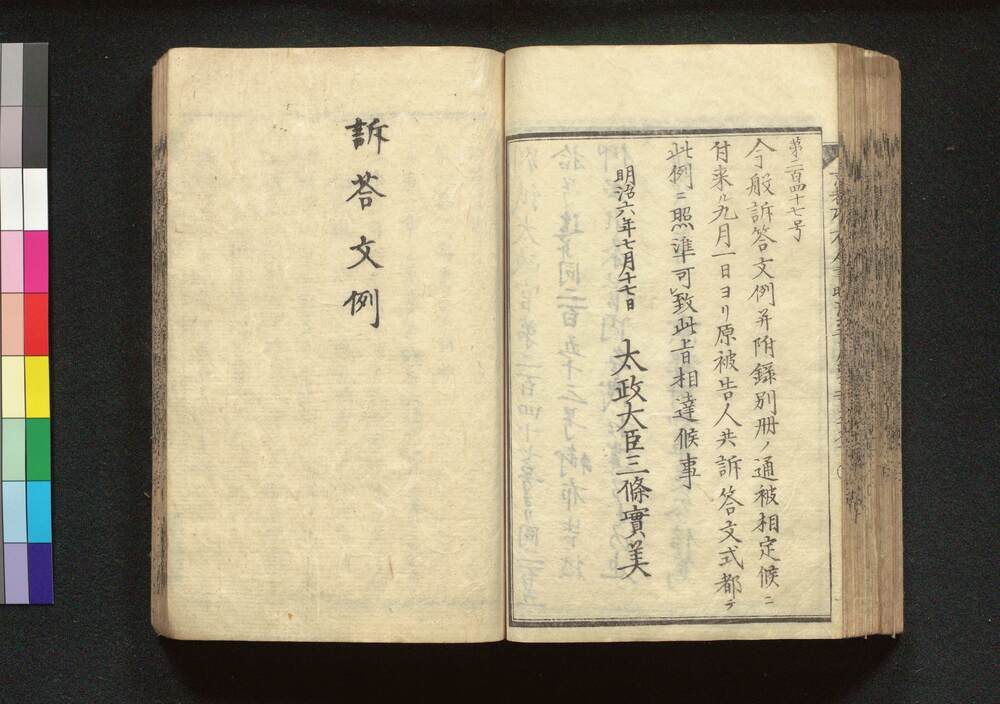 第二百四十七号
今般訴答文例并附録別冊ノ通被相定候ニ
付来ル九月一日ヨリ原被告人共訴答文式都テ
此例ニ照準可致此旨相達候事
明治六年七月十七日
太政大臣三條實美
訴荅文例